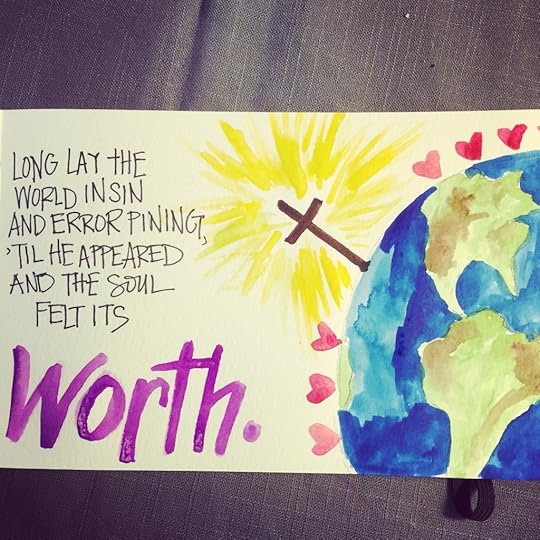 LONG LAY THE
WORLD IN SIN
AND ERROR PINING,
'TIL HE APPEARED
AND THE SOUL
FELT ITS
Worth.